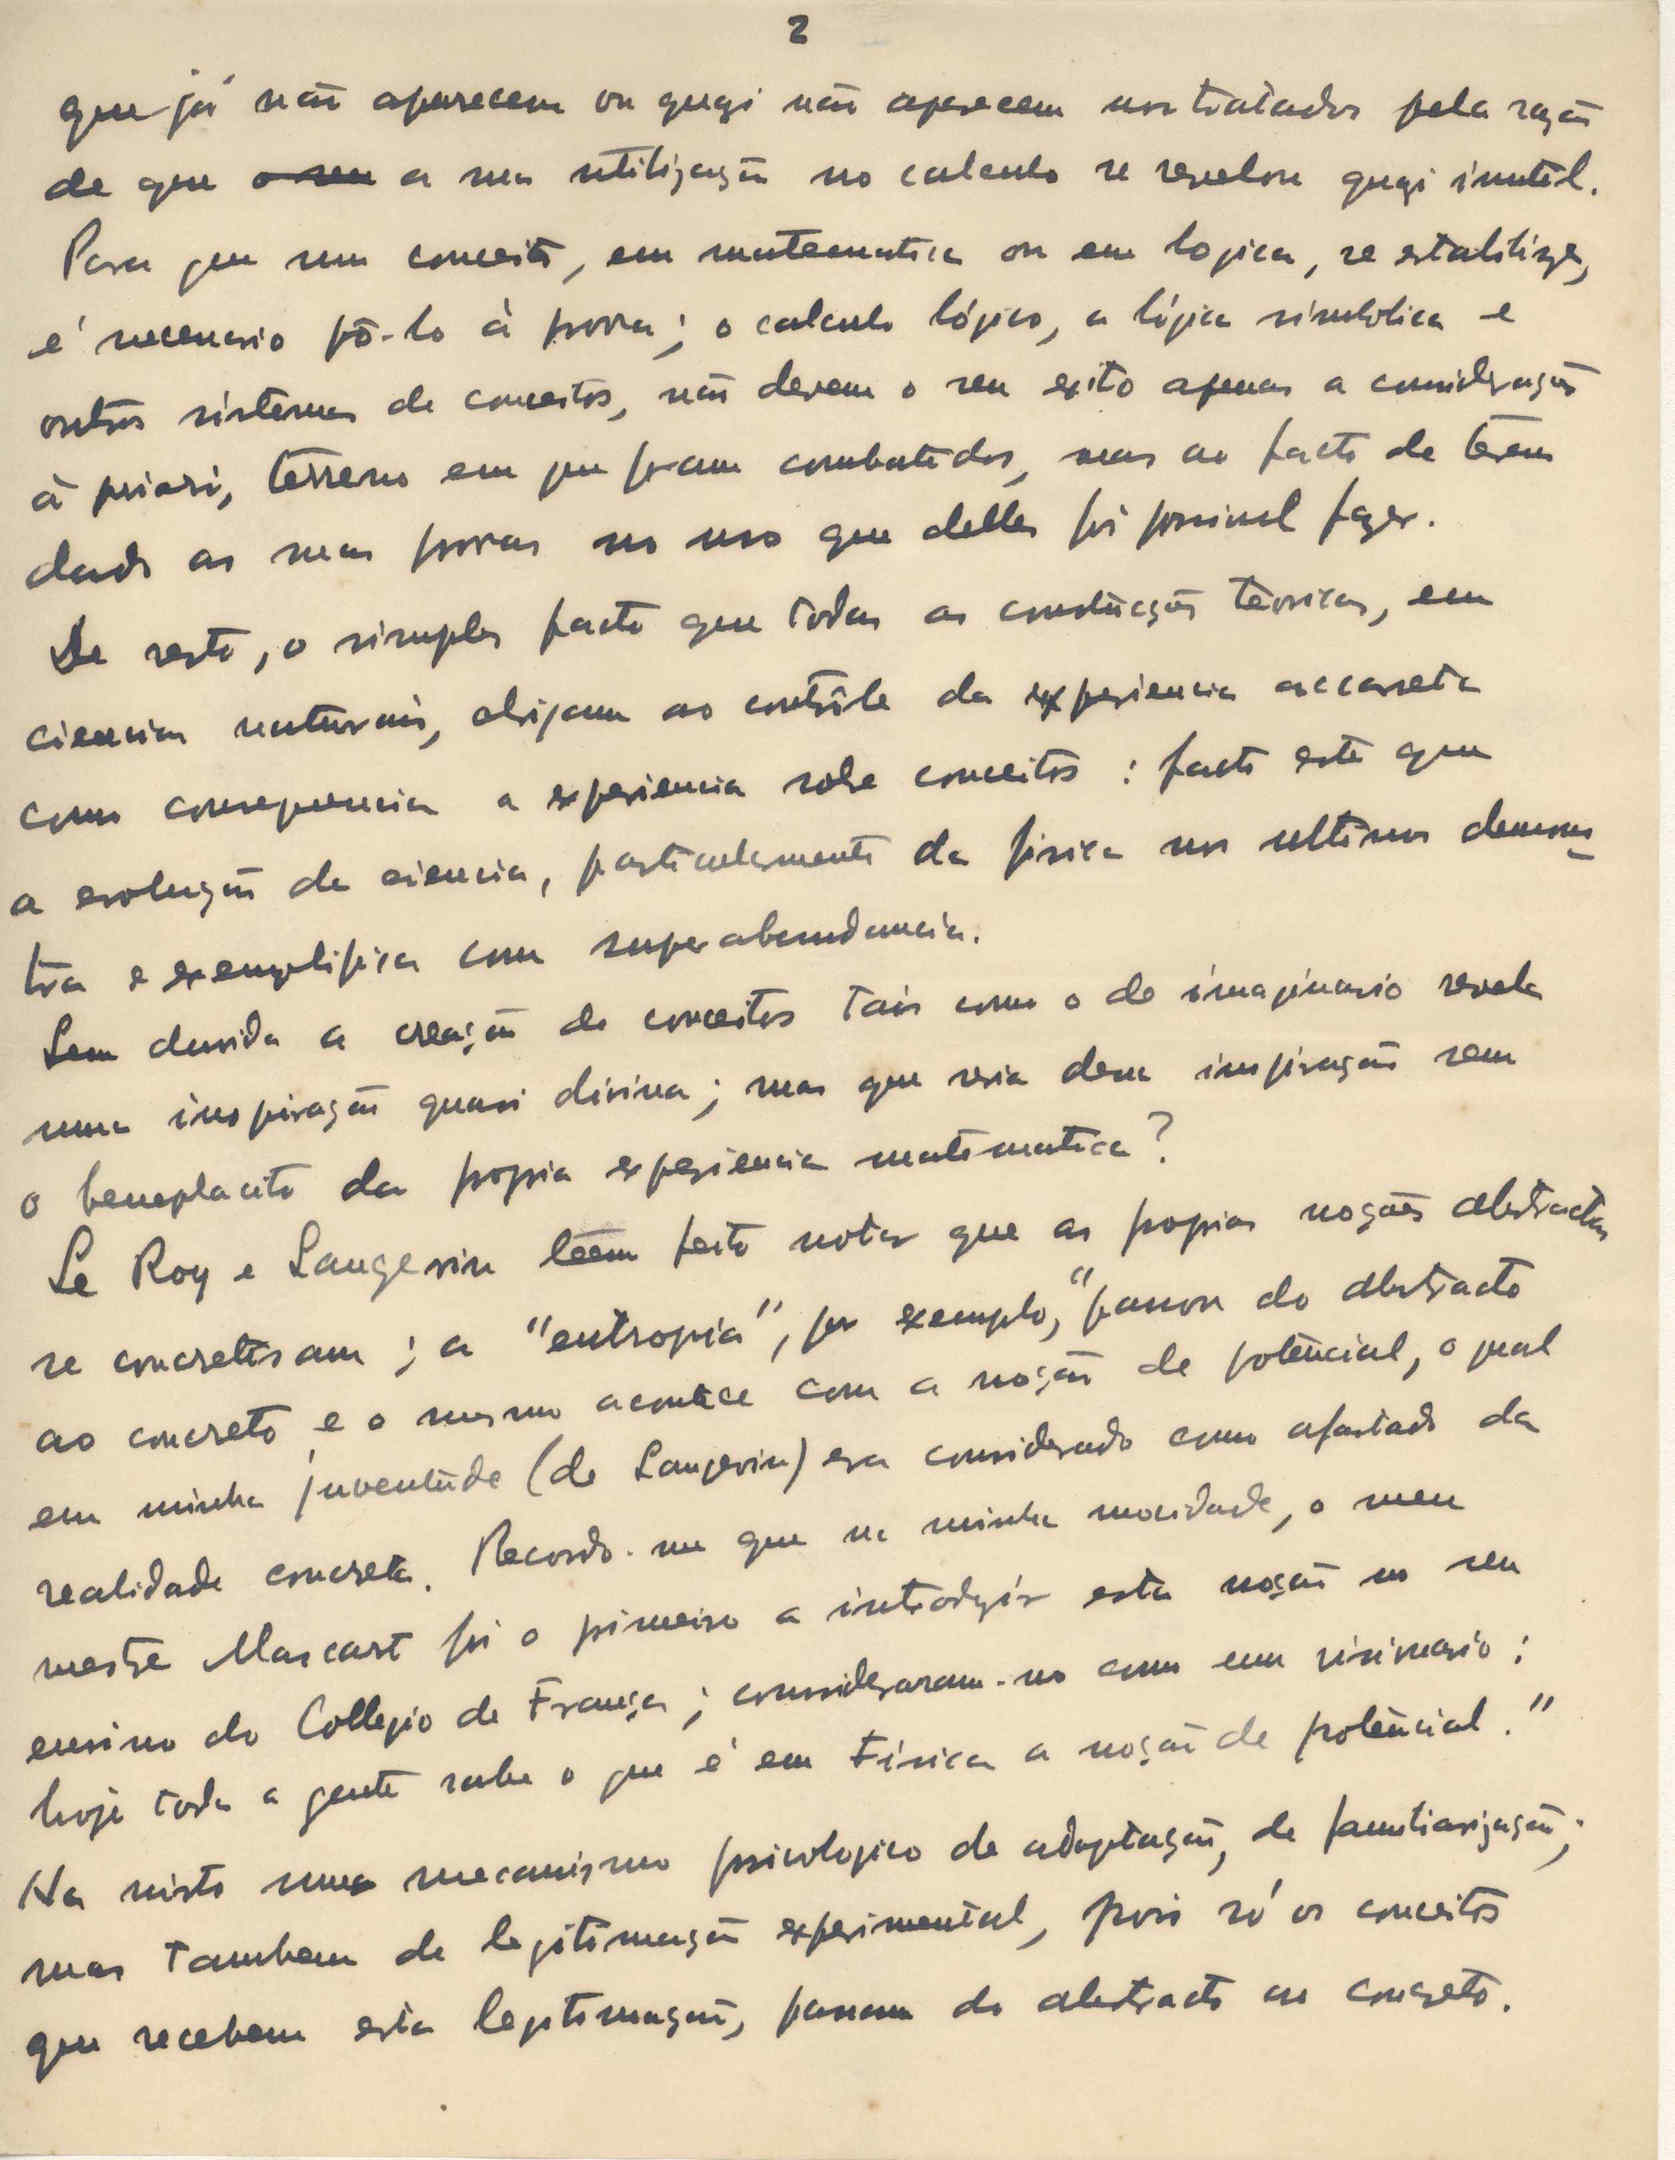 2
que já não aparecem ou quazi não aparecem nos tratados pela razão
de que o seu a sua utilização no calculo se revelou quazi inutil.
Para que um conceito, em matematica ou em logica, se estabilize,
é necessario pô-lo à prova; o calculo lógico, a lógica simbolica e
outros sistemas de conceitos, não devem o seu exito apenas a considerações
à priori, terreno em que foram combatidos, mas ao facto de terem
dado as suas provas no uso que delles foi possivel fazer.
De resto, o simples facto que todas as construções teóricas, em
ciencias naturais, obrigam ao contrôle da experiencia accarreta
como consequencia a experiencia sobre conceitos: facto este que
a evolução da ciencia, particularmente da fisica nos ultimos demons
tra e exemplifica com superabundancia.
Sem duvida a creação de conceitos tais como o do imaginario revela
uma inspiração quasi divina; mas que seria dessa inspiração sem
o beneplacito da propria experiencia matematica?
Le Roy e Langevin têem feito notar que as proprias noções abstractas
se concretisam; a "entropia", por exemplo, "passou do abstracto
ao concreto e o mesmo acontece com a noção de potêncial, o qual
em minha juventude (de Langevin) era considerado como afastado da
realidade concreta. Recordo-me que na minha mocidade, o meu
mestre Mascart foi o primeiro a introduzir esta noção no seu
ensino do Collegio de França; consideraram-no como um visionario:
hoje toda a gente sabe o que é em Física a noção de potêncial."
Ha nisto uma mecanismo psicologico de adaptação, de familiarização;
mas tambem de legitimação experimental, pois só os conceitos
que recebem esta legitimação, passam do abstracto ao concreto.